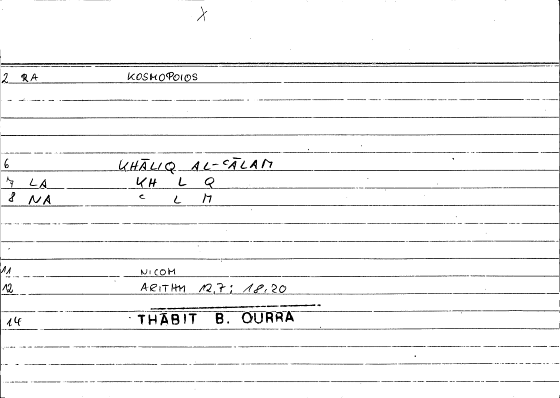 X
2 RA KOSMOPOIOS
6 KHĀLIQ AL-ᶜĀLAM
7 LA KH L Q
8 NA ᶜ L M
11 NICOM
12 ARITHM 12,7; 18,20
14 THĀBIT B. QURRA